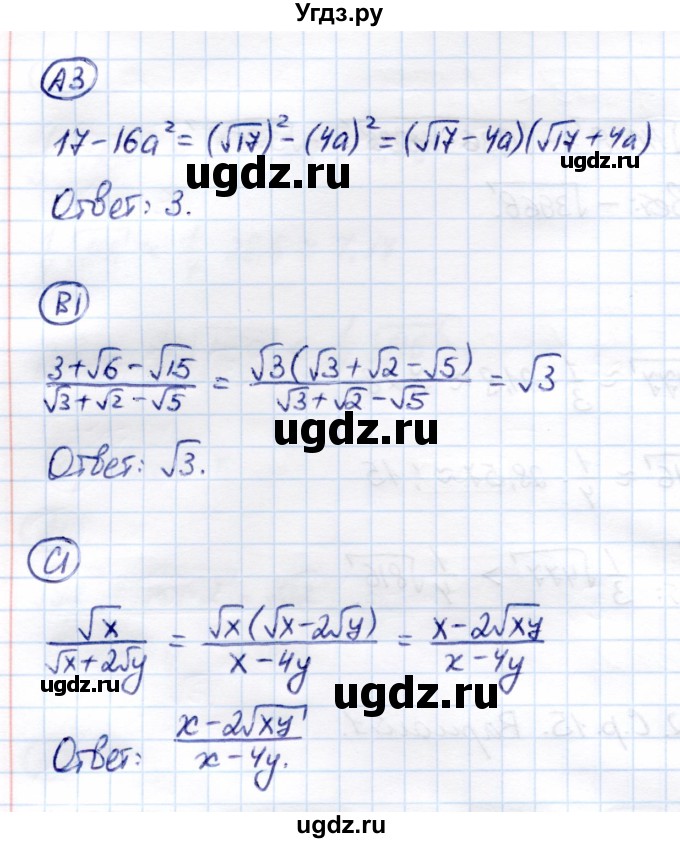 Угдз.ру
А3
17 - 16a² = (√17)² - (4a)² = (√17 - 4a)(√17 + 4a)
ugdz.ru ugdz.ru
Ответ: 3.
В1
(3 + √6 - √15)/(√3 + √2 - √5) = √3(√3 + √2 - √5)/(√3 + √2 - √5) = √3
ugdz.ru
Ответ: √3.
С1
√x/(√x + 2√y) = √x(√x - 2√y)/(x - 4y) = (x - 2√xy)/(x - 4y)
ugdz.ru ugdz.ru
Ответ: (x - 2√xy)/(x - 4y).
ugdz.ru